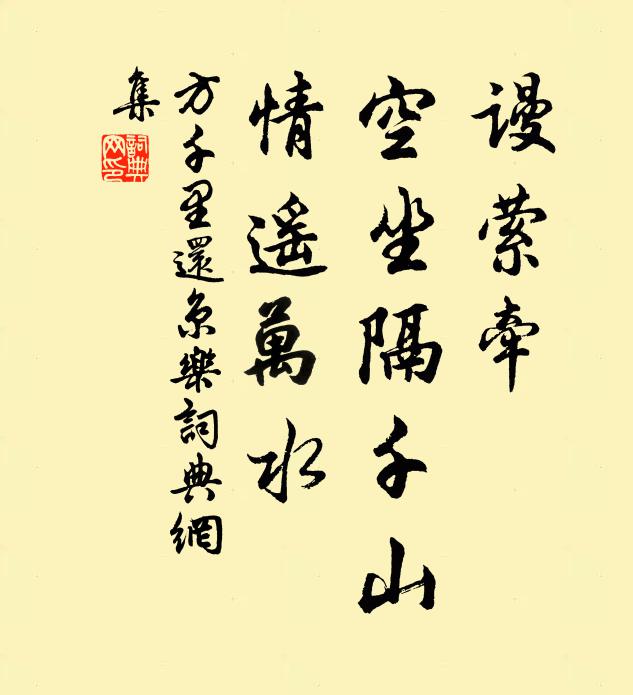 謾萦牽
空坐隔千山
情遥萬水
方千里還京樂詞典網
集
詞典網印